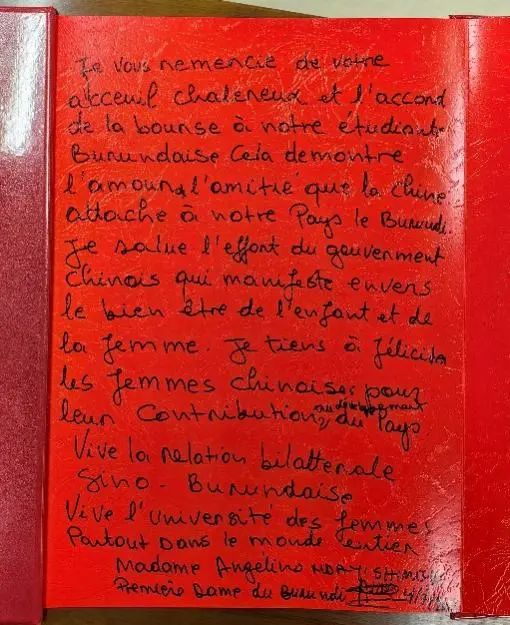 Je vous remercie de votre
akceuil chalereux et l'accord
de la bourse à notre étudiante
Burundaise Cela demontre
l'amour, l'amitié que la chine
attache à notre Pays le Burundi.
Je salue l'effort du gouverment
Chinois qui manifeste envers
le bien être de l'enfant et de
la femme. Je tiens à féliciter
les femmes chinoises pour
leur Contribution, au developpement du Pays.
Vive la relation bilatterale
Sino - Burundaise
Vive l'université des femmes
Partout Dans le monde entier
Madame Angeline NDAYISHIMIYE
Première Dame du Burundi